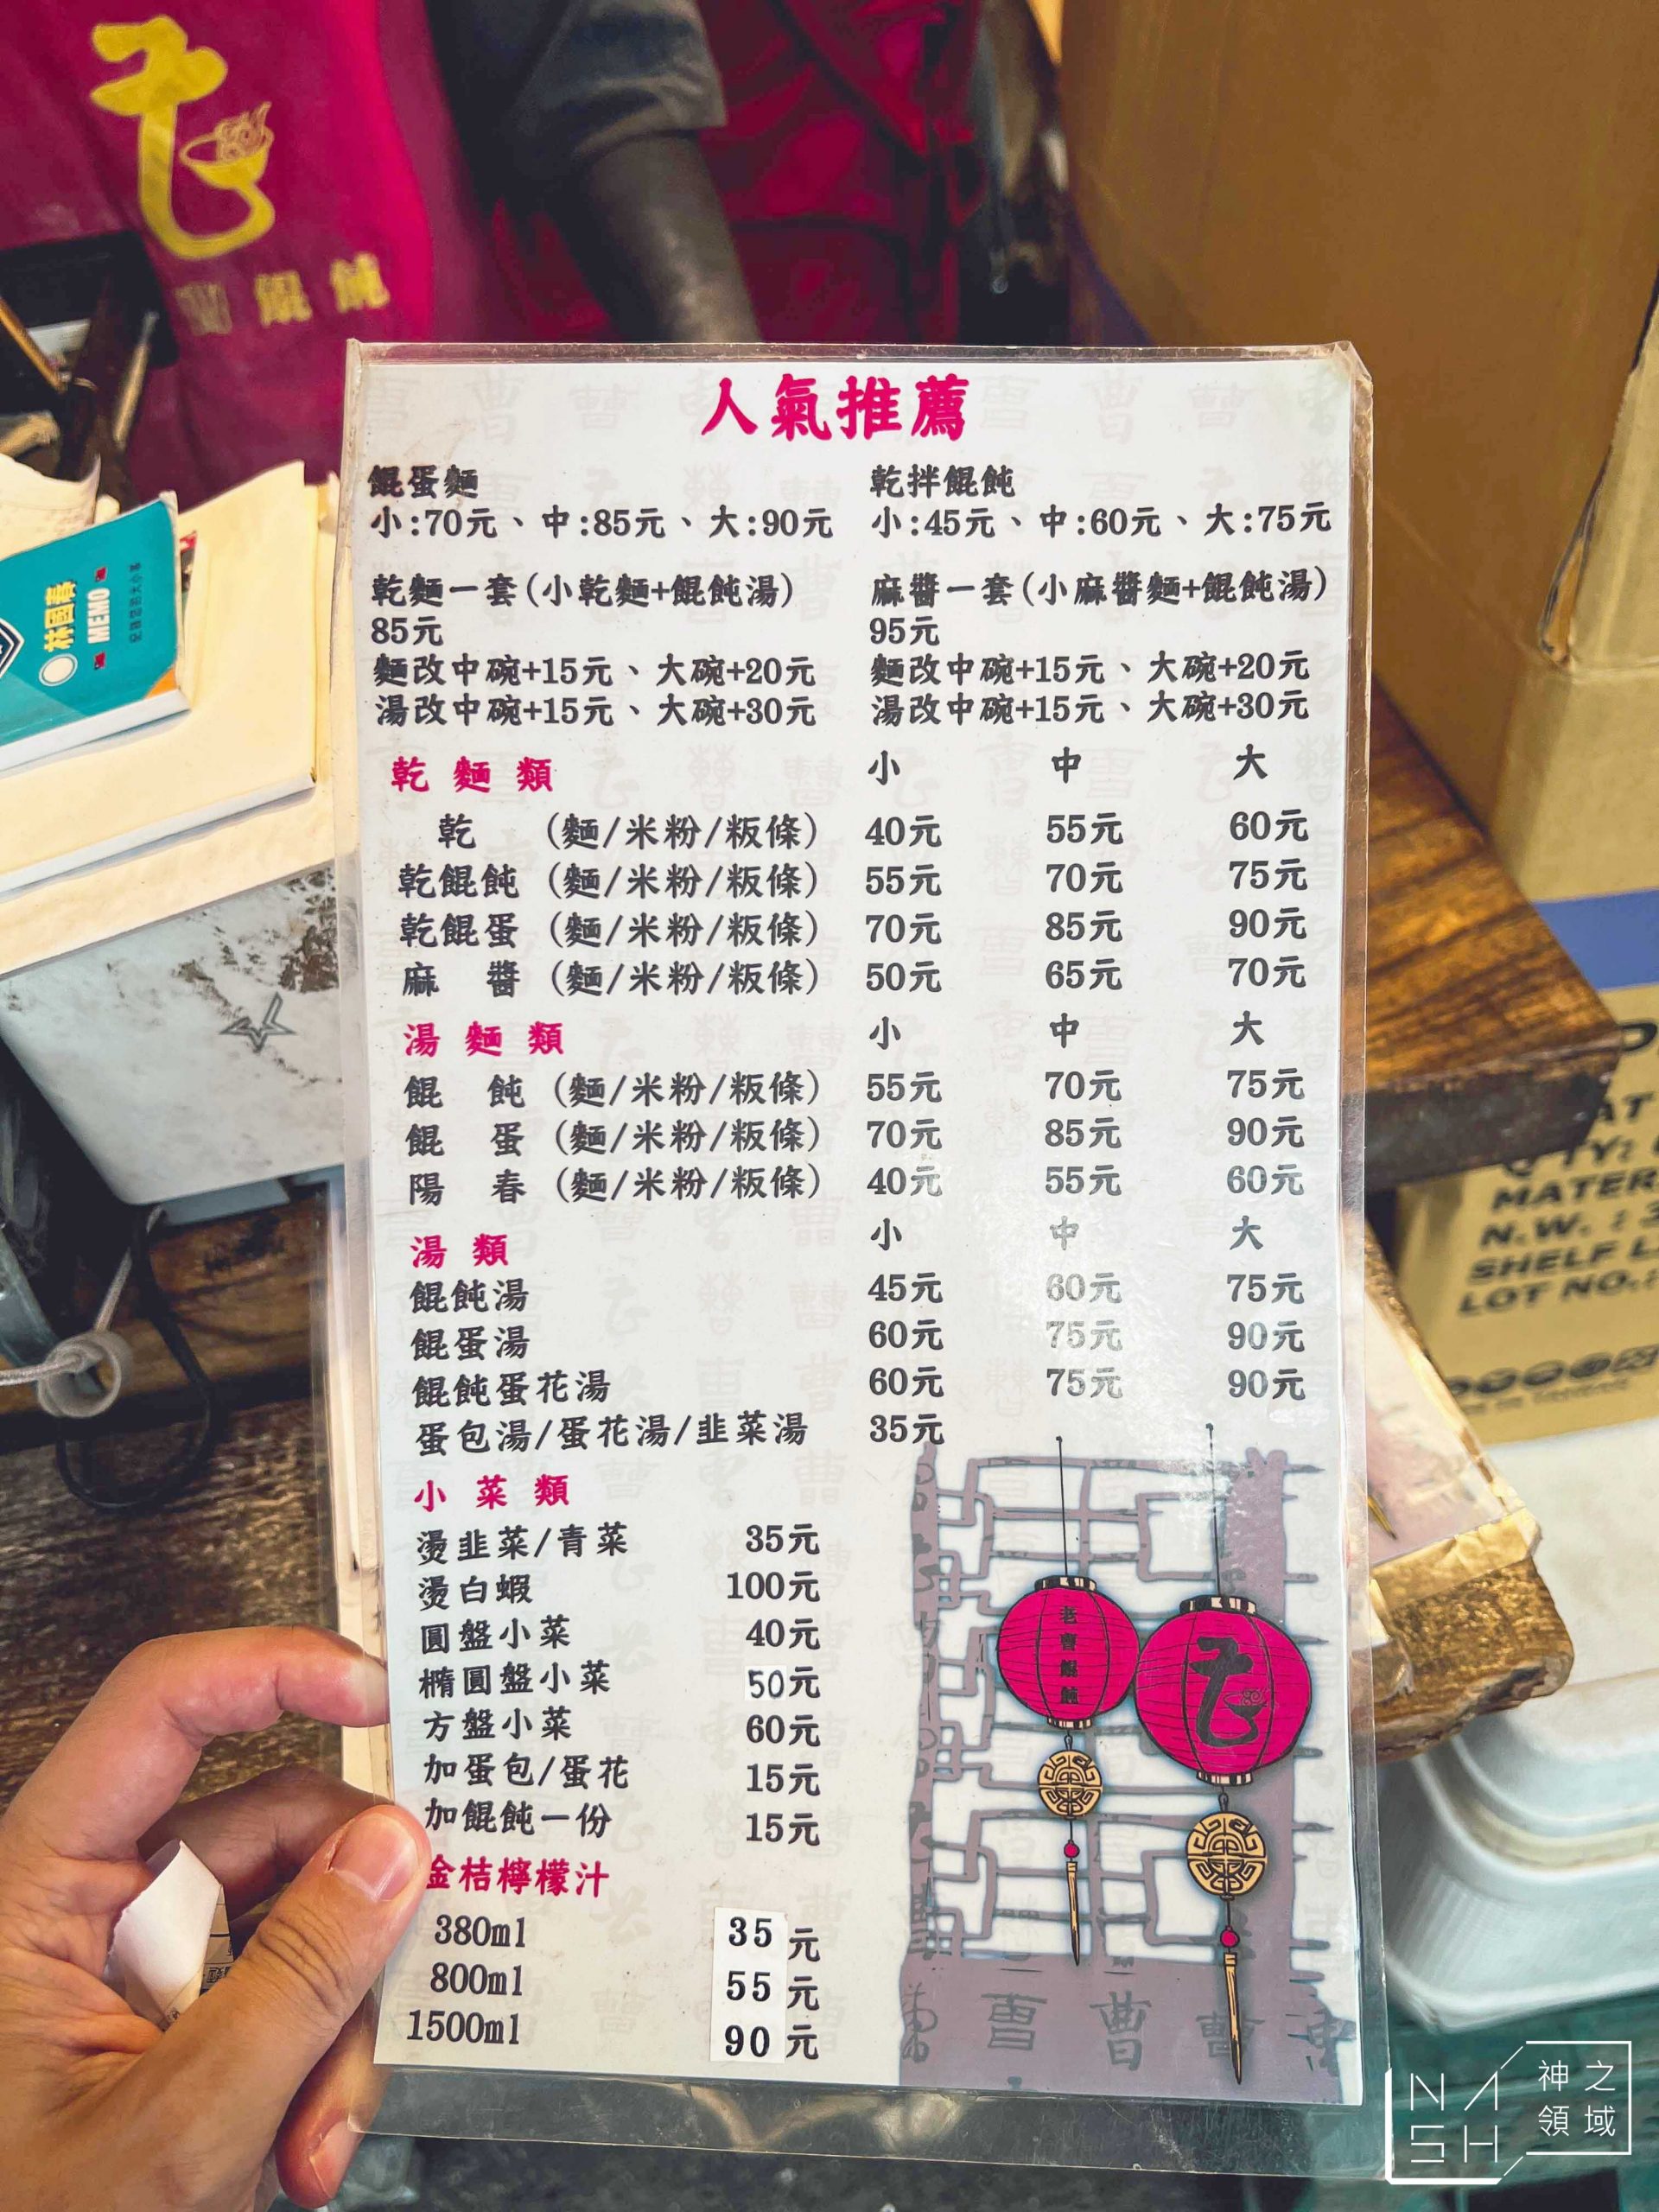 餛飩
林國春
MEMO
人氣推薦
餛蛋麵
小:70元、中:85元、大:90元
乾拌餛飩
小:45元、中:60元、大:75元
乾麵一套(小乾麵+餛飩湯)
85元
麵改中碗+15元、大碗+20元
湯改中碗+15元、大碗+30元
麻醬一套(小麻醬麵+餛飩湯)
95元
麵改中碗+15元、大碗+20元
湯改中碗+15元、大碗+30元
乾麵類 小 中 大
乾 (麵/米粉/粄條) 40元 55元 60元
乾餛飩 (麵/米粉/粄條) 55元 70元 75元
乾餛蛋 (麵/米粉/粄條) 70元 85元 90元
麻醬 (麵/米粉/粄條) 50元 65元 70元
湯麵類 小 中 大
餛飩 (麵/米粉/粄條) 55元 70元 75元
餛蛋 (麵/米粉/粄條) 70元 85元 90元
陽春 (麵/米粉/粄條) 40元 55元 60元
湯類 小 中 大
餛飩湯 45元 60元 75元
餛蛋湯 60元 75元 90元
餛飩蛋花湯 60元 75元 90元
蛋包湯/蛋花湯/韭菜湯 35元
小菜類
燙韭菜/青菜 35元
燙白蝦 100元
圓盤小菜 40元
橢圓盤小菜 50元
方盤小菜 60元
加蛋包/蛋花 15元
加餛飩一份 15元
金桔檸檬汁
380ml 35元
800ml 55元
1500ml 90元
老曹餛飩
MATER
N.W. : 3
SHELF L
LOT NO.:
NASH
神之
領域